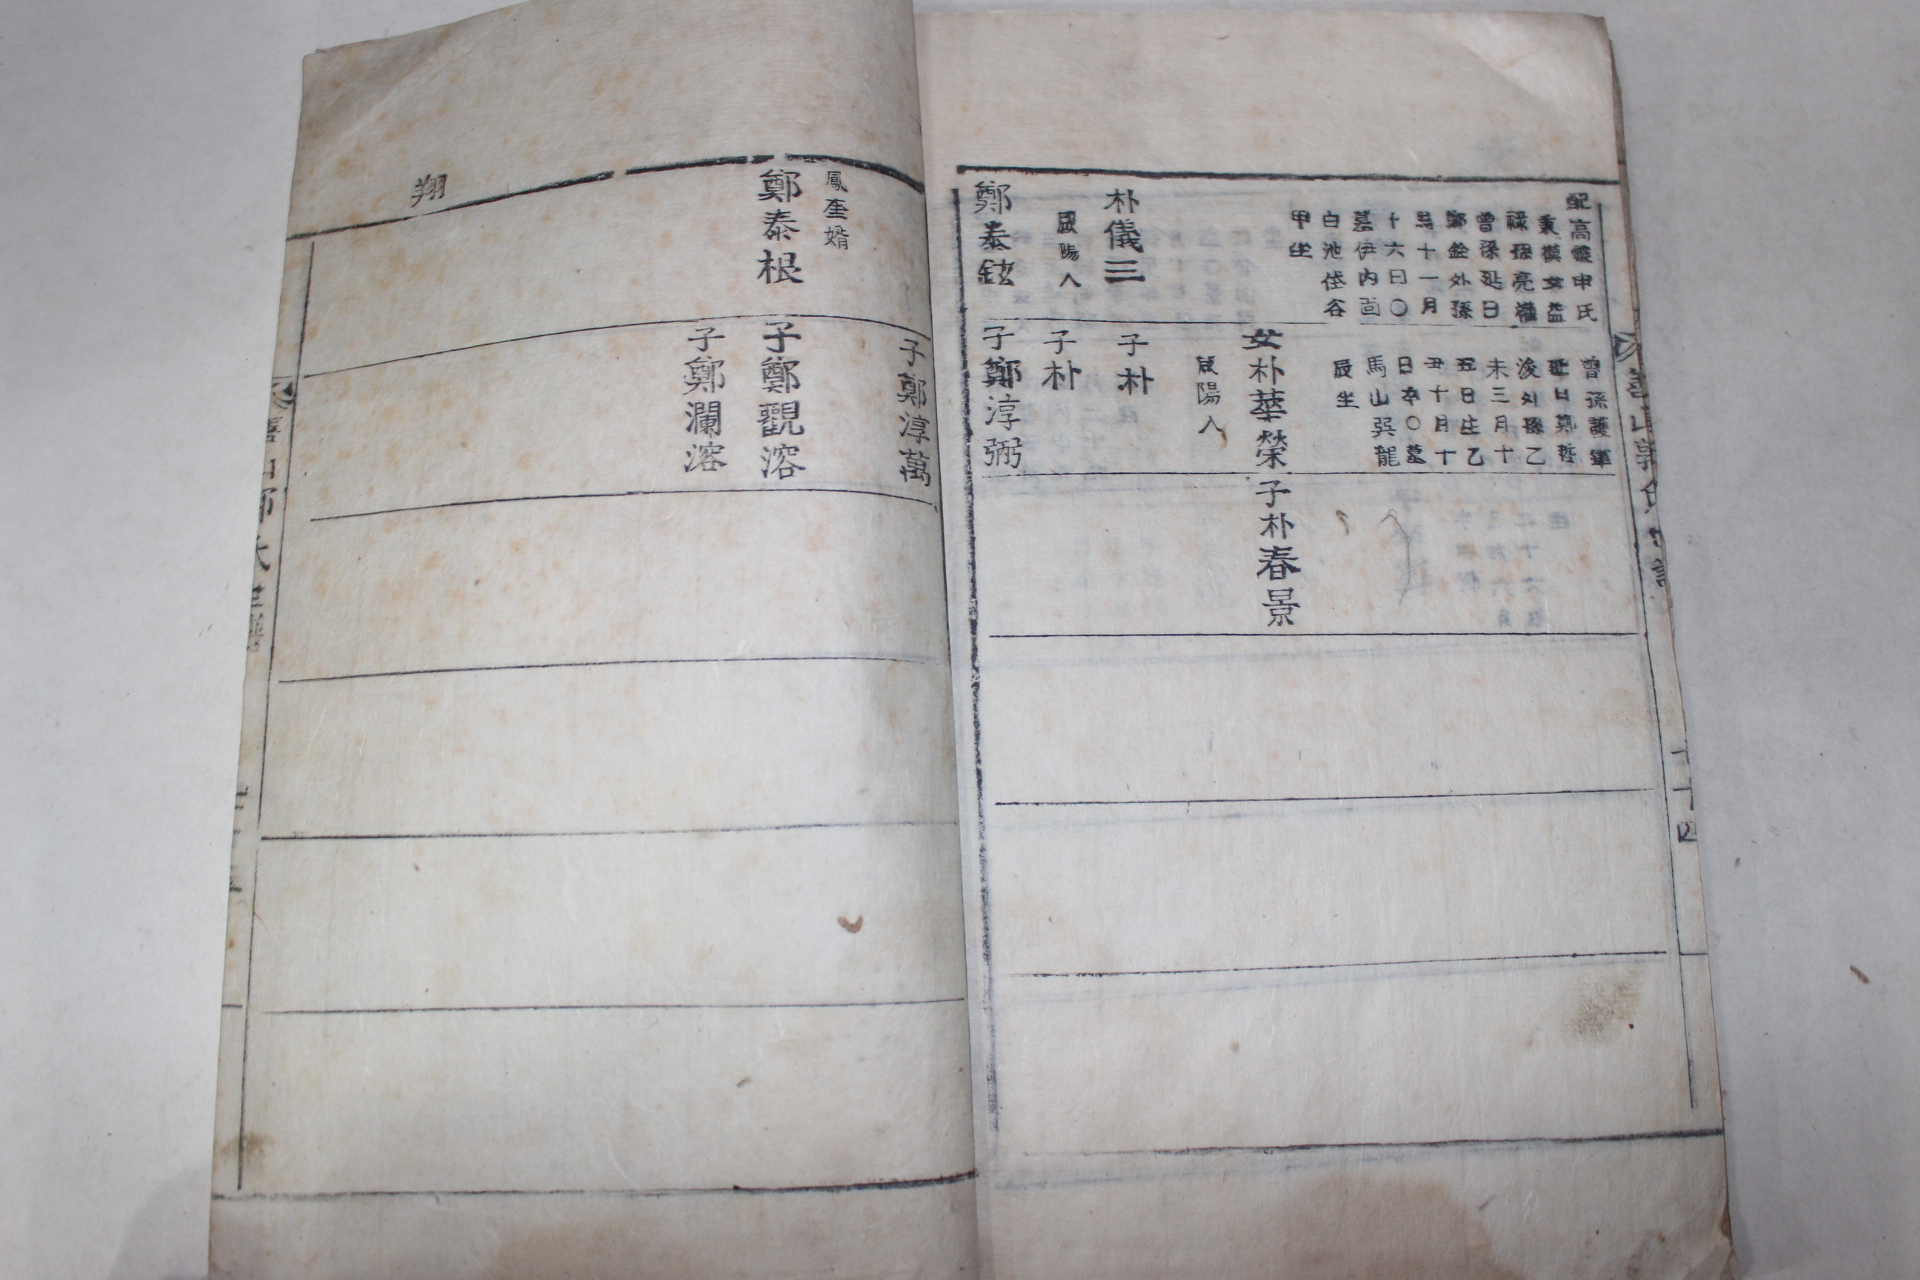 配高靈申氏
秉模女益
祿孫亮權
曾孫延日
鄭銓外孫
十一月
十六日〇
墓伊內面
白池垈谷
甲坐
朴儀三
咸陽人
鄭泰鉉
曾孫護軍
延日鄭哲
浚外孫乙
未三月十
五日生乙
丑十月十
日卒〇墓
馬山吳龍
辰坐
女朴華榮
咸陽人
子朴
子朴
子鄭淳弼
子朴春景
十四
鳳奎婿
鄭泰根
子鄭淳萬
子鄭觀溶
子鄭瀾溶
翔